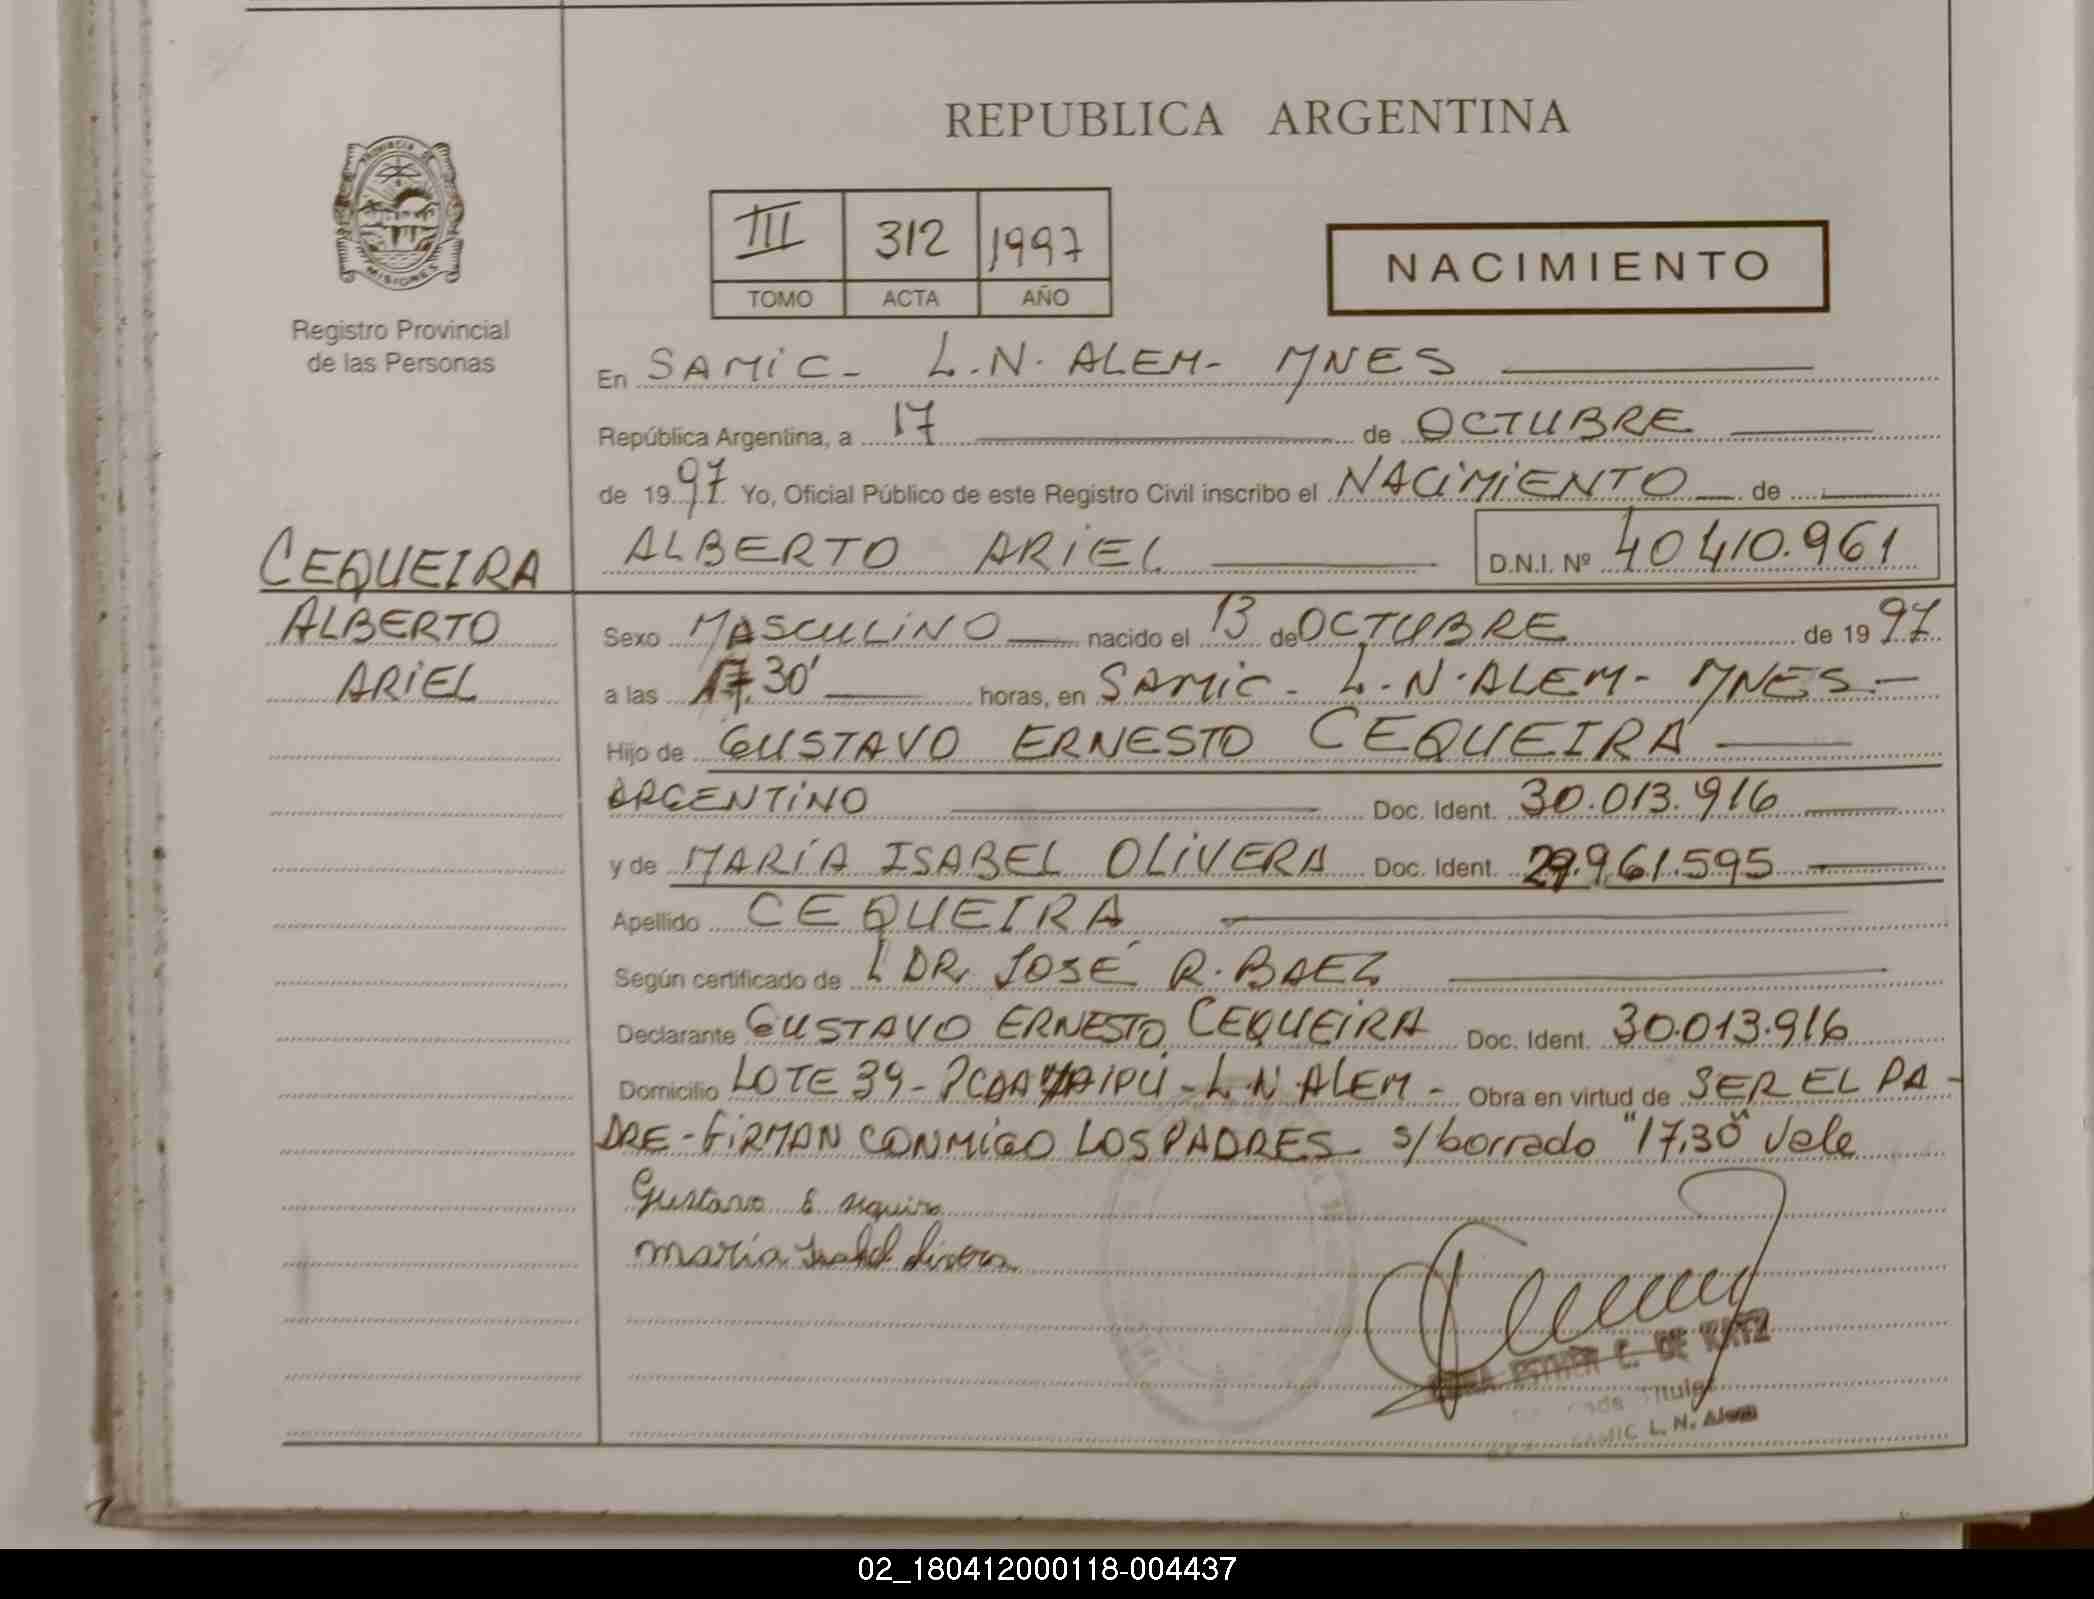 REPUBLICA ARGENTINA
PROVINCIA DE
MISIONES
Registro Provincial
de las Personas
III 312 1997
TOMO ACTA AÑO
NACIMIENTO
En SAMIC - L.N. ALEM - MNES
República Argentina, a 17 de OCTUBRE
de 1997 Yo, Oficial Público de este Registro Civil inscribo el NACIMIENTO de
CEQUEIRA
ALBERTO
ARIEL
ALBERTO ARIEL D.N.I. Nº 40410.961
Sexo MASCULINO nacido el 13 de OCTUBRE de 1997
a las 17.30' horas, en SAMIC - L.N. ALEM - MNES -
Hijo de GUSTAVO ERNESTO CEQUEIRA
ARGENTINO Doc. Ident. 30.013.916
y de MARÍA ISABEL OLIVERA Doc. Ident. 29.961.595
Apellido CEQUEIRA
Según certificado de DR. JOSÉ R. BAEZ
Declarante GUSTAVO ERNESTO CEQUEIRA Doc. Ident. 30.013.916
Domicilio LOTE 39 - PCDA MAIPÚ - L.N. ALEM - Obra en virtud de SER EL PA-
DRE - FIRMAN CONMIGO LOS PADRES s/borrado "17,30" Vale
Gustavo E sequira
María Isabel livera
ESTHER C. DE
Titular
SAMIC L. N. Alem
02_180412000118-004437